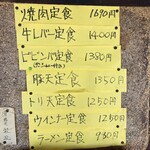 焼肉定食 1690円
牛レバー定食 1400円
ビビンバ定食 1380円
豚天定食 1350円
トリ天定食 1250円
ウインナー定食 1260円
ラーメン定食 930円